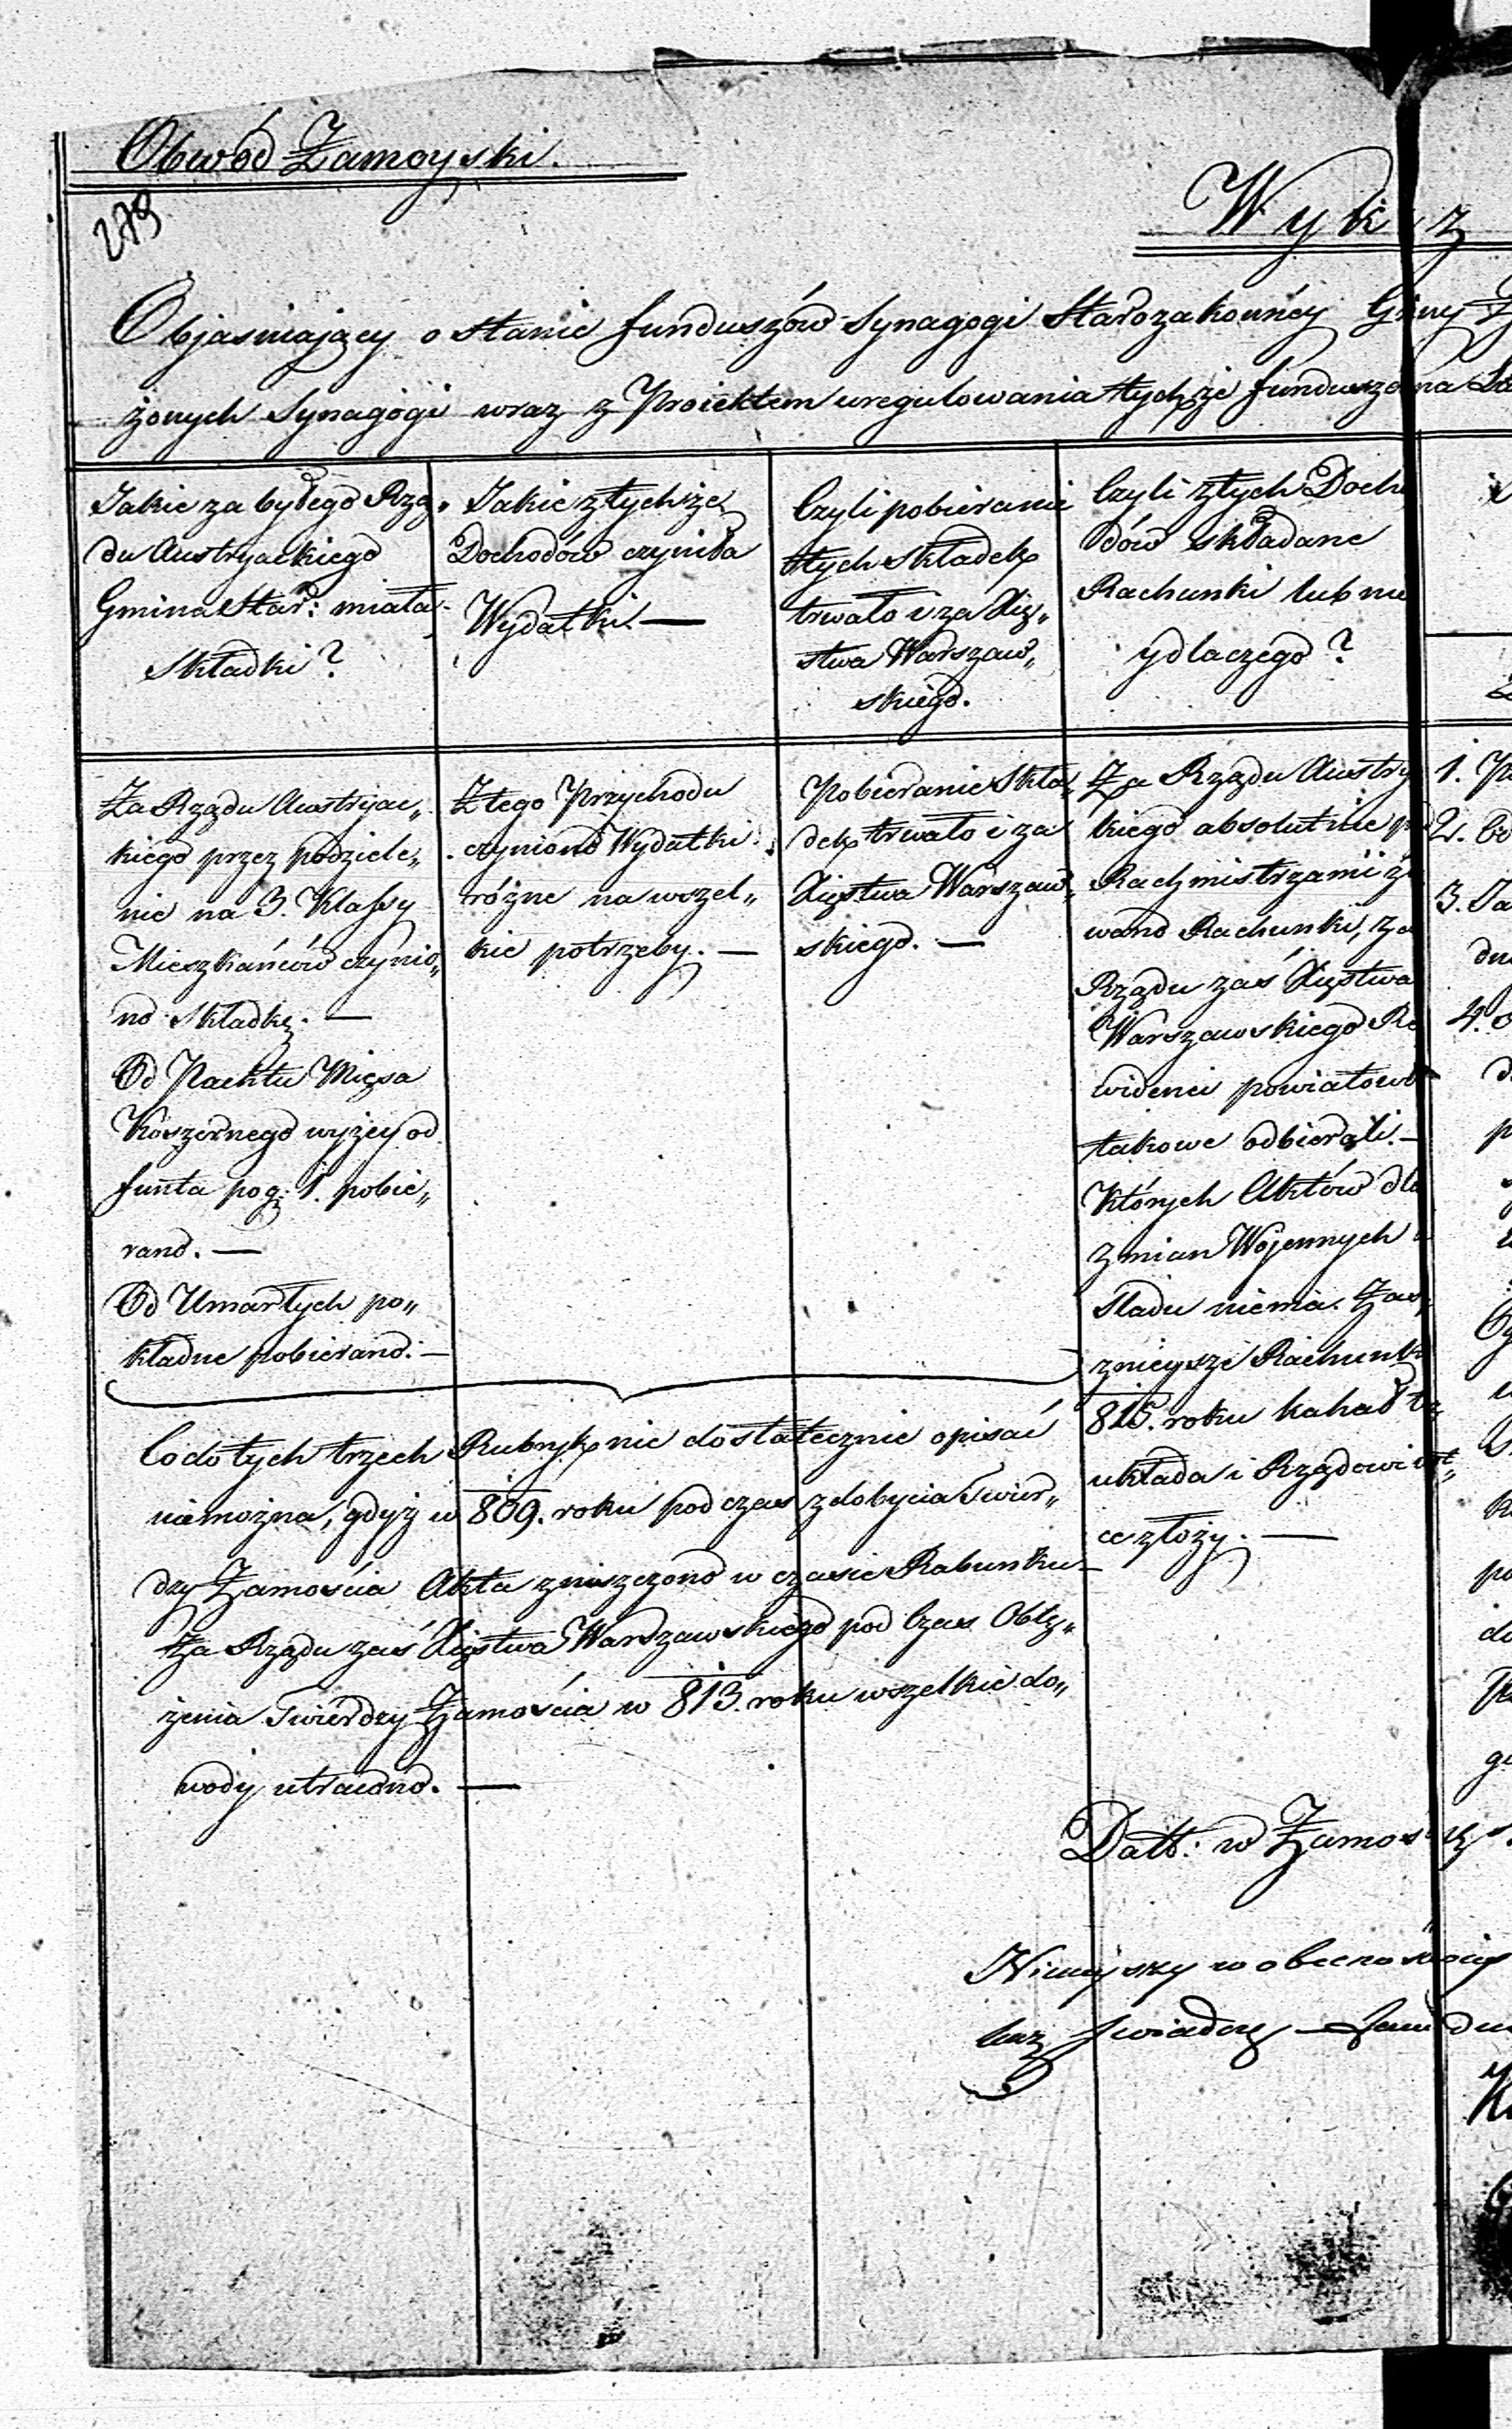 Obwód Zamoyski.
279
Wyk z
Objasniający o stanie funduszów Synagogi Starozakonnéy Gminy
żonych Synagogi wraz z Proiektem uregulowania tychże funduszó na
Jakie za byłego Rzą„
du Austryackiego
Gmina Star: miała
Składki?
Jakie z tychże
Dochodów czyniła
Wydatki. —
Czyli pobieranie
tych składek
trwało i za Xię„
stwa Warszaw„
skiego.
Czyli z tych Docho
dów składane
Rachunki lub nie
y dlaczego?
Za Rządu Austryac„
kiego przez podziele„
nie na 3. Klassy
Mieszkańców czynio„
no Składkę. —
Od Pachtu Mięsa
Koszernego wyżey od
funta po g: 1. pobie„
rano. —
Od Umarłych po„
kładne pobierano. —
Z tego Przychodu
czyniono Wydatki
różne na wszel„
kie potrzeby. —
Pobieranie Skła„
dek trwało i za
Xięstwa Warszaw„
skiego. —
Za Rządu Austry
kiego absolutnie p
Rachmistrzami
wano Rachunki, za
Rządu zaś Xięstwa
Warszawskiego Re
widenci powiatowi
takowe odbierali. —
Których Aktów dla
zmian Wojennych
śladu niema. Zaś
znieysze Rachunki
815. roku kahał
układa i Rządowi
ce złoży. —
Co do tych trzech Rubryk nie dostatecznie opisać
niemożna, gdyż w 809. roku podczas zdobycia Twier„
dzy Zamościa Akta zniszczono w czasie Rabunku —
Za Rządu zaś Xięstwa Warszawskiego pod Czas Oblę„
żenia Twierdzy Zamościa w 813. roku wszelkie do„
wody utracono. —
1.
2. Od
3. Za
4.
Datt: w Zamoś
Ninieyszy w obecnoś
świadczę